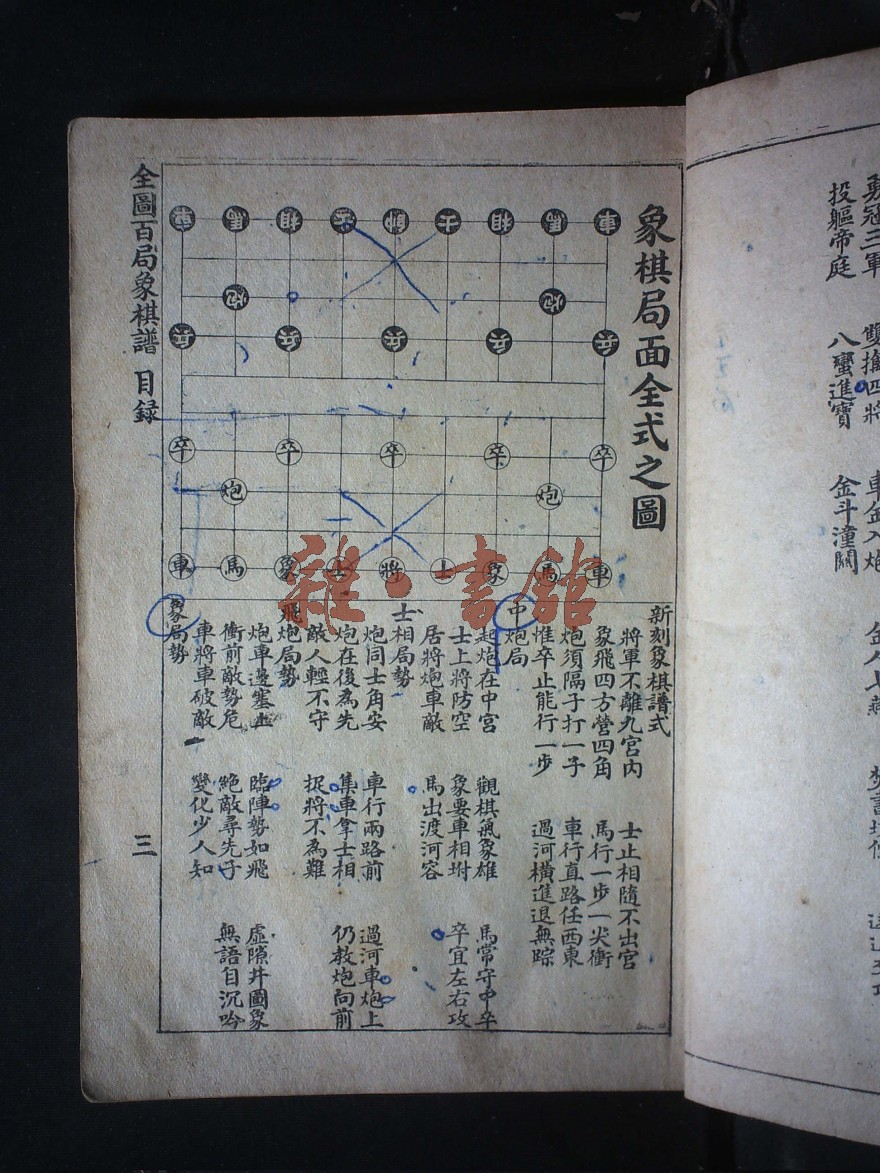 象棋局面全式之圖
車馬相士帥士相馬車
炮炮
兵兵兵兵兵
卒卒卒卒卒
炮炮
車馬象士將士象馬車
新刻象棋譜式
將軍不離九宮內 士止相隨不出宮
象飛四方營四角 馬行一步一尖衝
炮須隔子打一子 車行直路任西東
惟卒止能行一步 過河橫進退無踪
中炮局
起炮在中宮 觀棋氣象雄 馬常守中卒
士上將防空 象要車相坿 卒宜左右攻
居將炮車敵 馬出渡河容
士相局勢
炮同士角安 車行兩路前 過河車炮上
炮在後為先 集車拿士相 仍教炮向前
敵人輕不守 捉將不為難
飛炮局勢
炮車邊塞上 臨陣勢如飛 虛隙井圖象
衝前敵勢危 絕敵尋先子 無語自沉吟
車將車破敵 變化少人知
象局勢
全圖百局象棋譜 目録 三
雜·書館
勇冠三軍 雙擒四將 車金入炮
投軀帝庭 八蠻進寶 金斗潼關